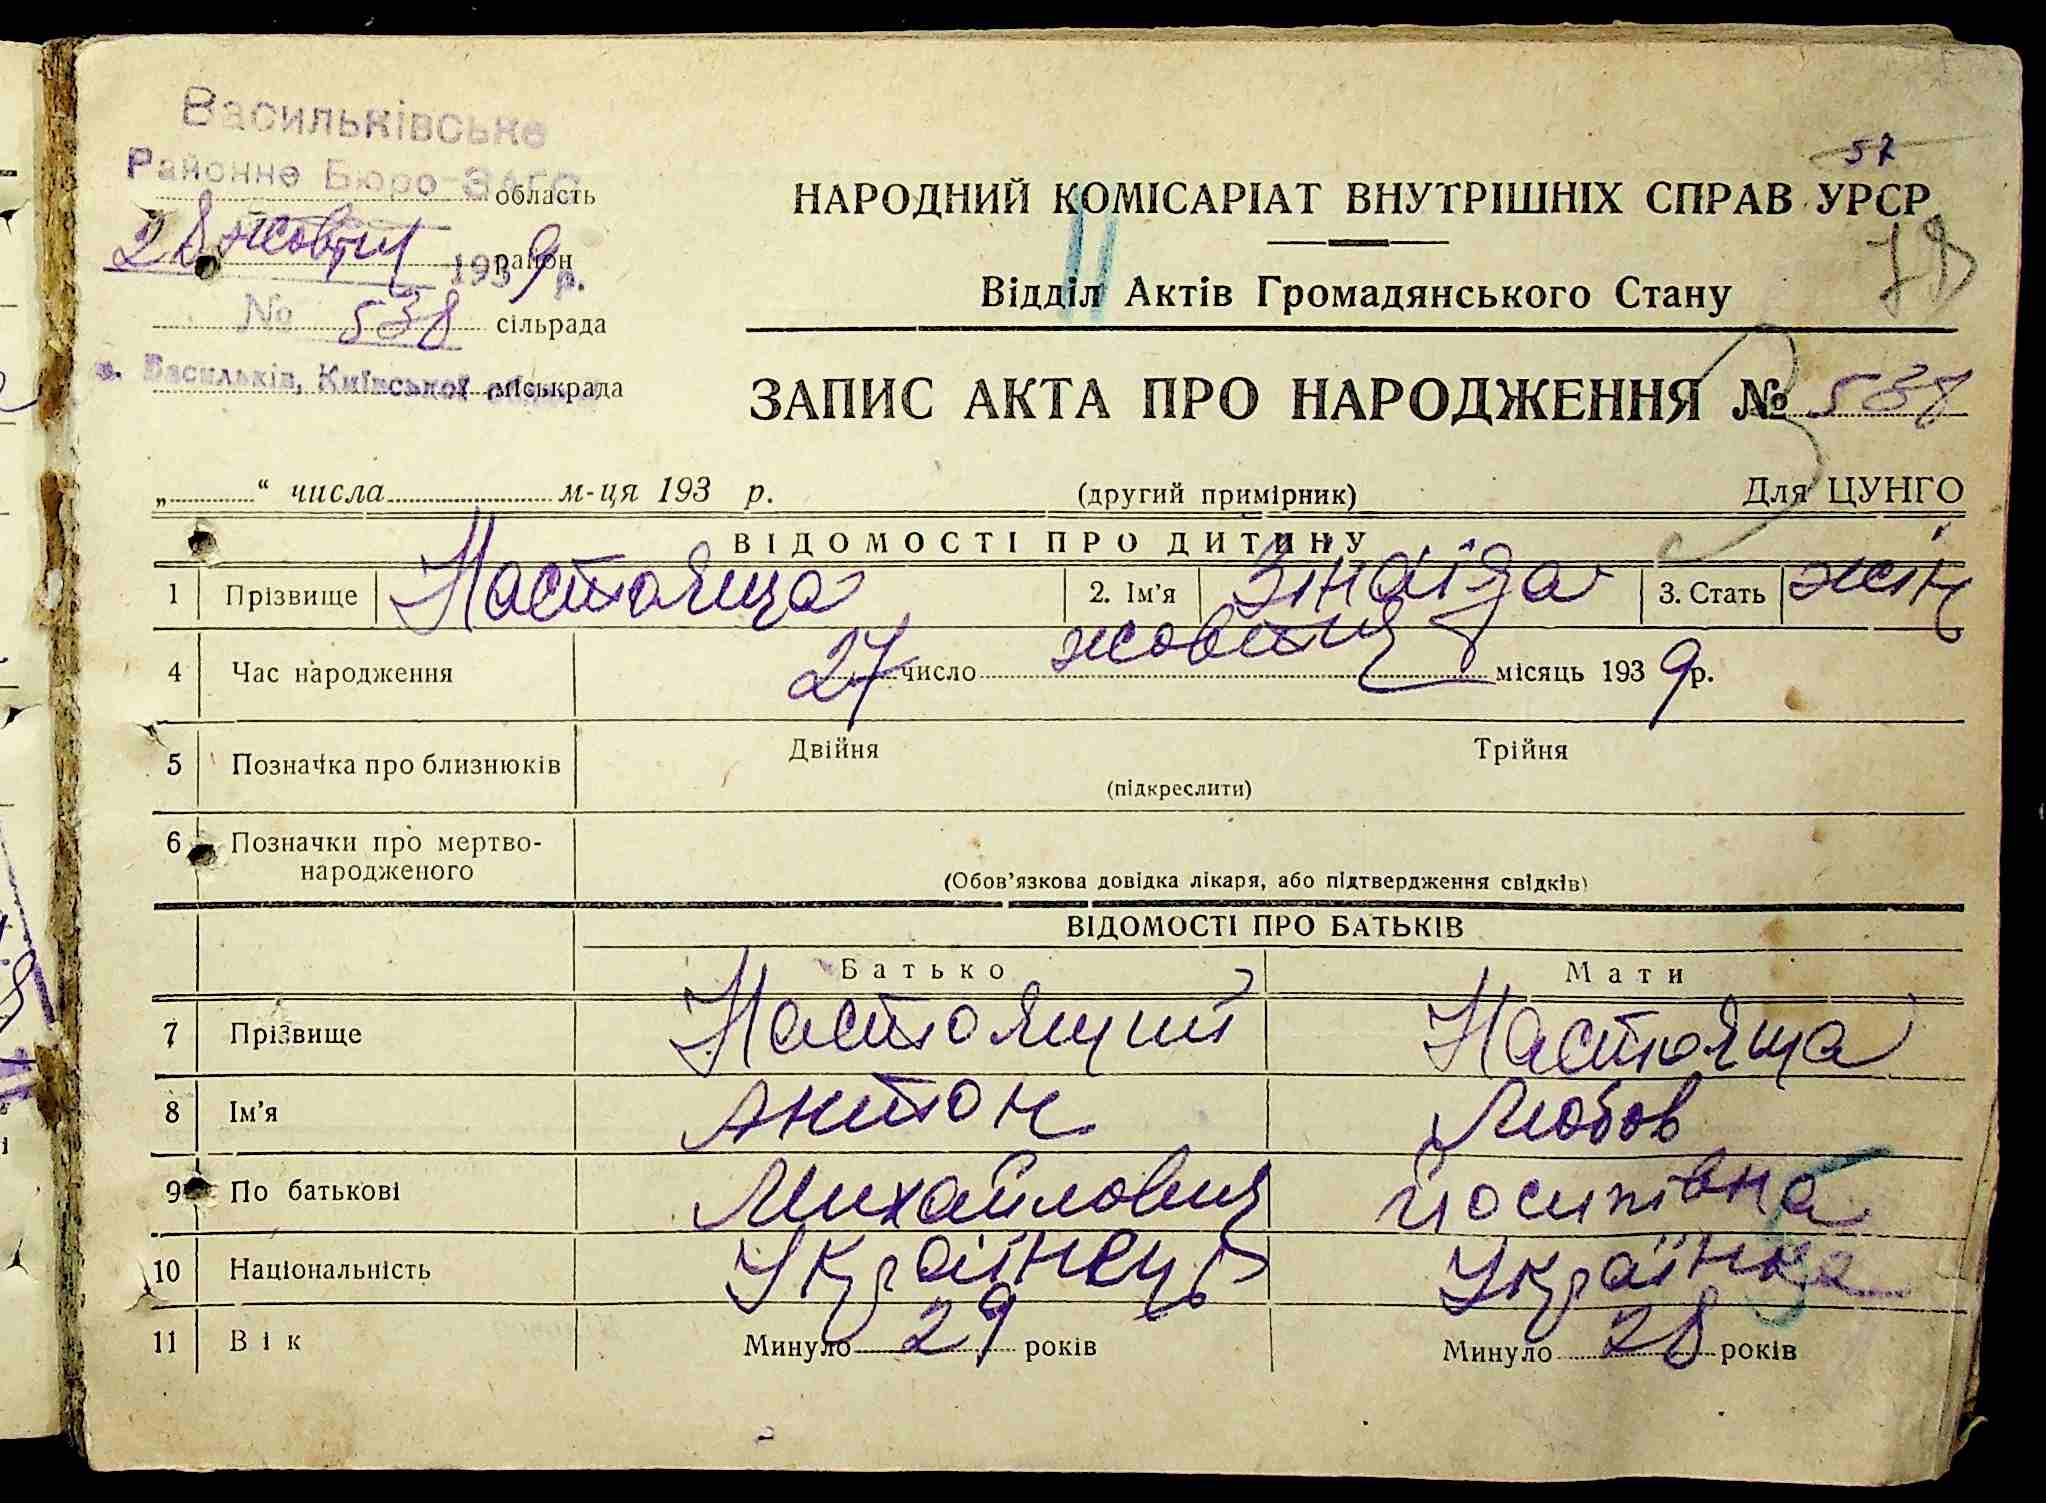 Васильківське
Районне Бюро ЗАГС
область
28 жовтня 1939 р.
район
№ 538 сільрада
м. Васильків, Київської області
міськрада
57
НАРОДНИЙ КОМІСАРІАТ ВНУТРІШНІХ СПРАВ УРСР
78
Відділ Актів Громадянського Стану
ЗАПИС АКТА ПРО НАРОДЖЕННЯ № 538
„ “ числа м-ця 193 р. (другий примірник) Для ЦУНГО
ВІДОМОСТІ ПРО ДИТИНУ
1 Прізвище Настояща 2. Ім'я Зінаїда 3. Стать жін
4 Час народження 27 число жовтня місяць 1939 р.
5 Позначка про близнюків Двійня Трійня
(підкреслити)
6 Позначки про мертво-
народженого
(Обов'язкова довідка лікаря, або підтвердження свідків)
ВІДОМОСТІ ПРО БАТЬКІВ
Батько Мати
7 Прізвище Настоящий Настояща
8 Ім'я Антон Любов
9 По батькові Михайлович Йосипівна
10 Національність Українець Українка
11 Вік Минуло 29 років Минуло 28 років